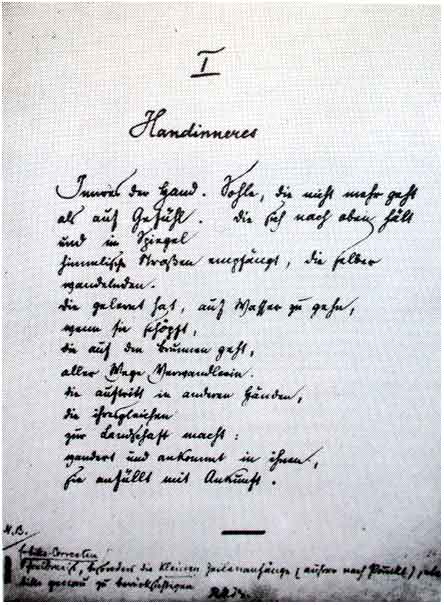 I
Handinneres
Innres der Hand. Sohle, die nicht mehr geht
als auf Gefühl. Die sich nach oben hält
und im Spiegel
himmlische Straßen empfängt, die selber
wandelnden.
die gelernt hat, auf Wasser zu gehn,
wenn sie schöpft,
die auf den Brunnen geht,
aller Wege Verwandlerin.
die auftritt in anderen Händen,
die ihresgleichen
zur Landschaft macht:
wandert und ankommt in ihnen,
sie anfüllt mit Ankunft.
N.B.
besonders die kleinen Zeilenanfänge (außer nach Punkt),
bitte genau zu berücksichtigen